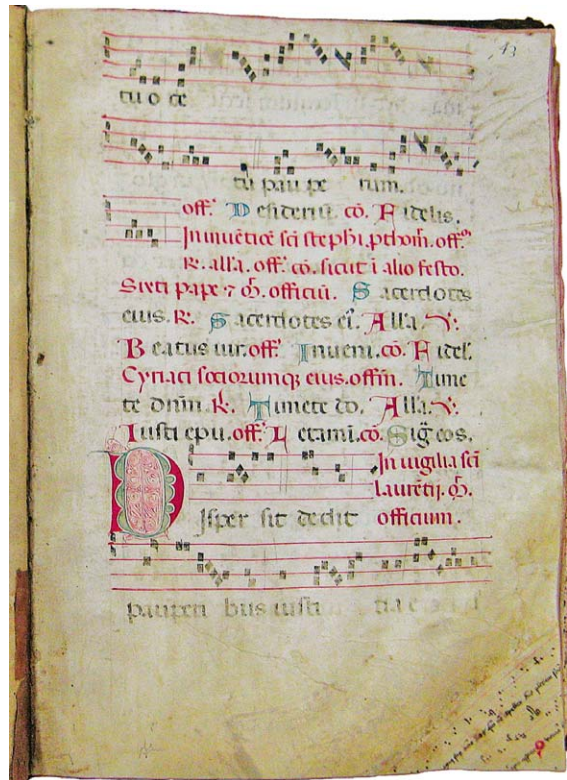 43
tu o te
tu pau pe rum.
off. Desideriū. cō. Fidelis.
In inuētiōe sci stephi. pthom̄. off.
R. all'a. off. cō. sicut ī alio festo.
Sixti pape ⁊ m̄. officiū. Sacerdotes
eius. R. Sacerdotes ei. All'a. V.
Beatus uir. off. Inueni. cō. Fidel.
Cyriaci sociorumqꝫ eius. offm̄. Time
te dnm̄. R. Timete do. All'a. V.
Iusti epu. off. Letami. cō. Sig̅ eos.
In uigilia sci
laurētij. m̄.
Disper sit dedit officium.
pauperi bus iusti tia e